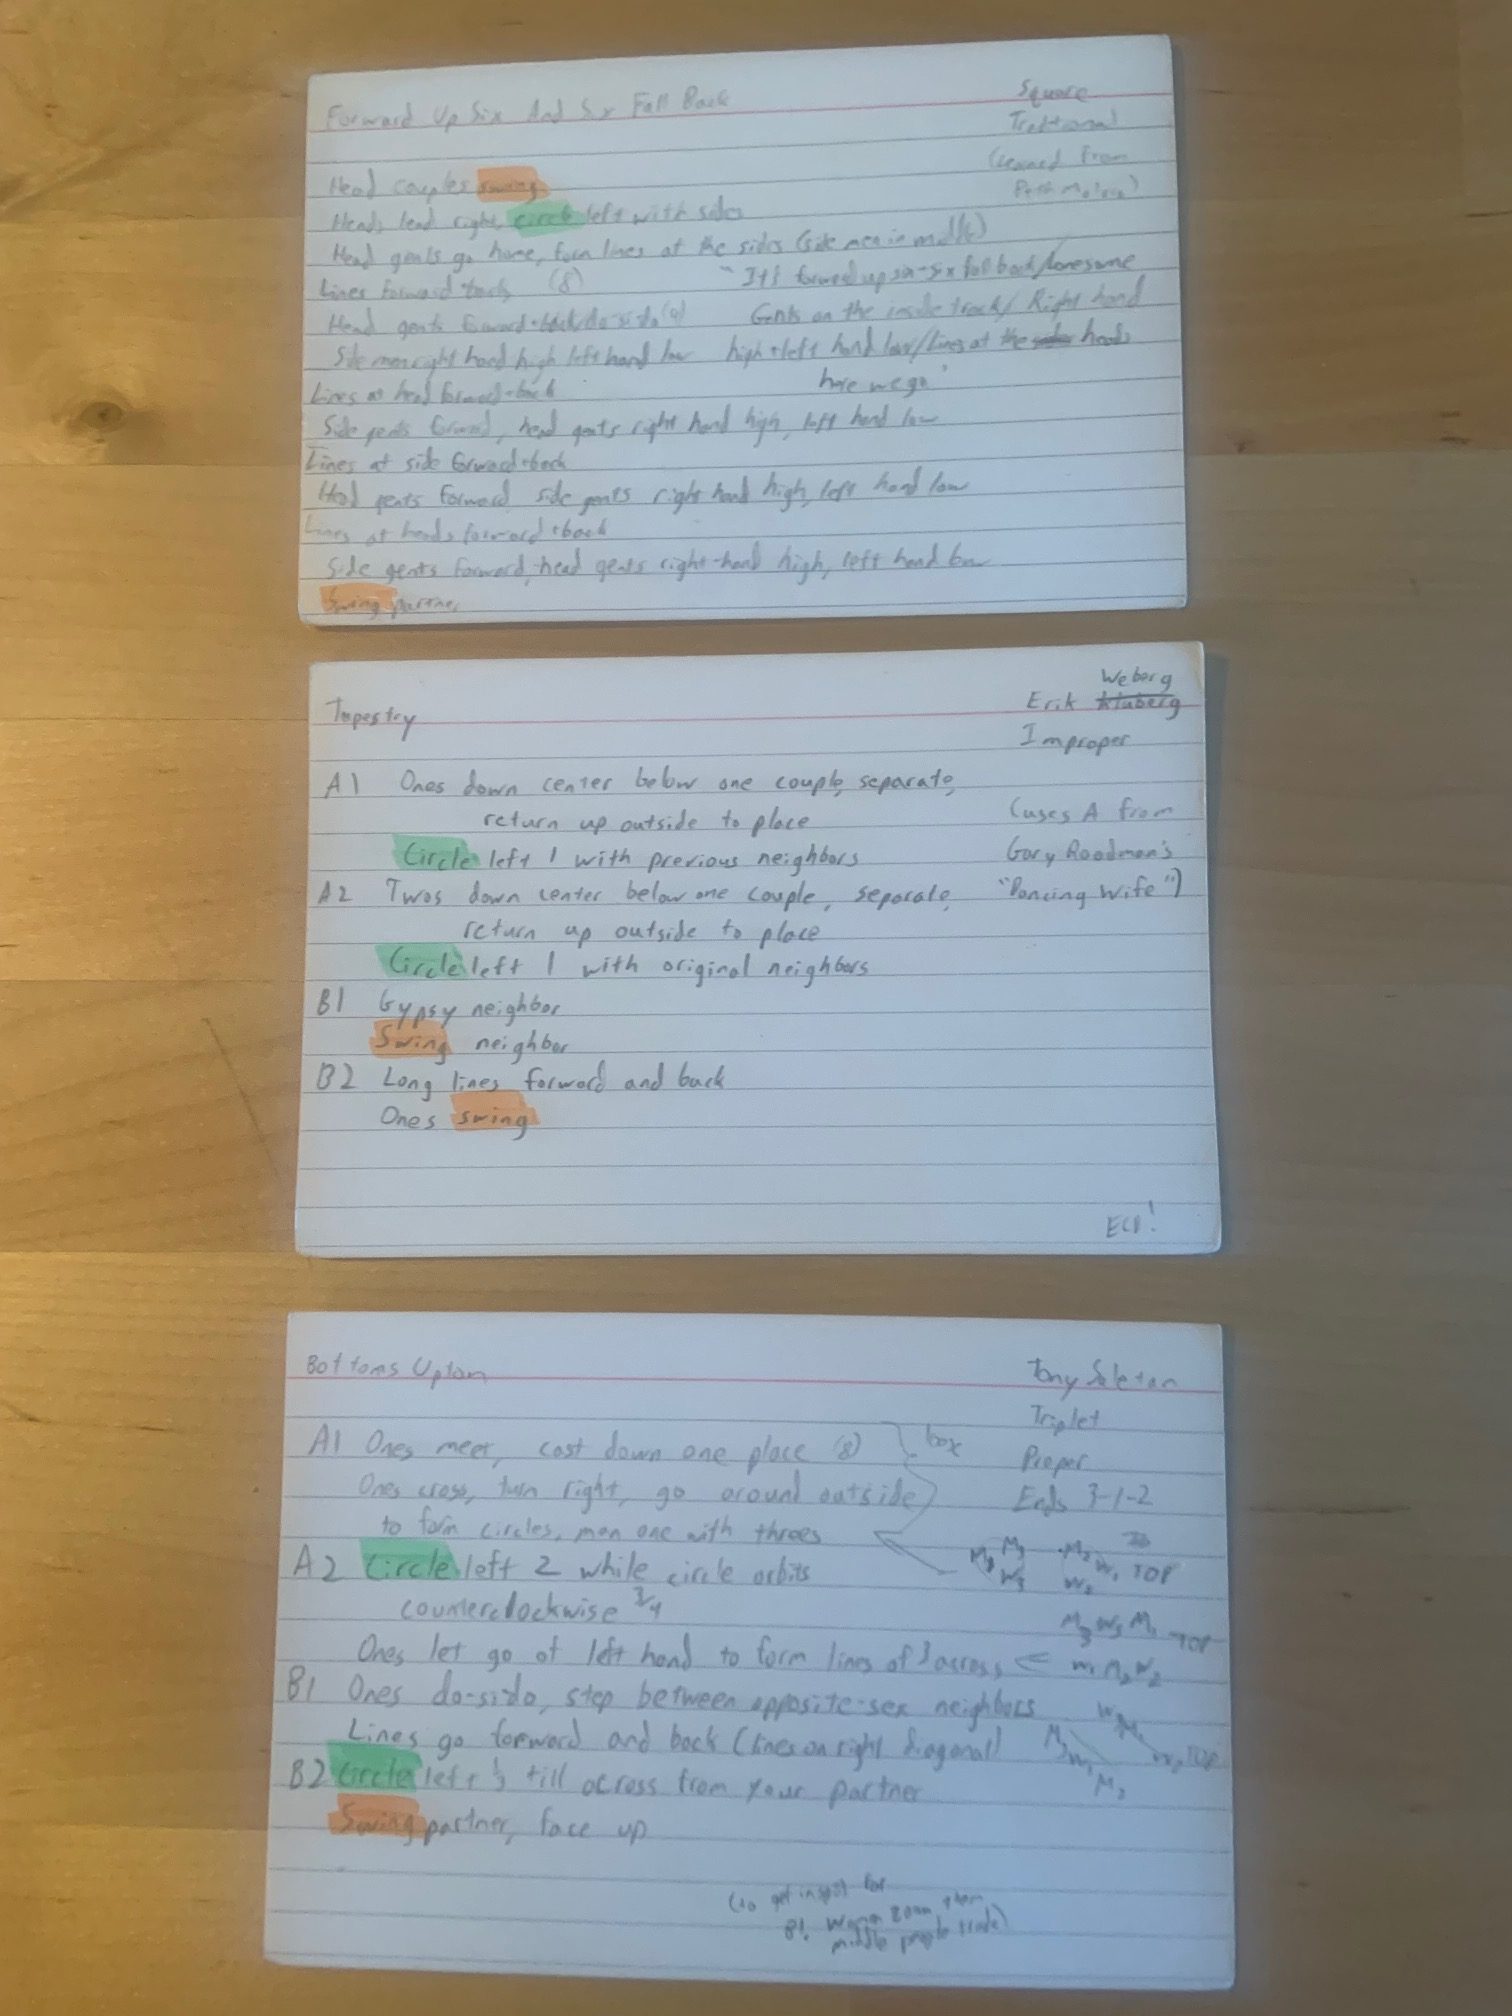 Forward Up Six And Six Fall Back
Square
Traditional
(learned from
Head couples swing
Heads lead right, circle left with sides
Head gents go home, form lines at the sides (side men in middle)
Lines forward + back (8)
"It's forward up six - six fall back / lonesome
Head gents forward + back / do-si-do
Gents on the inside track / Right hand
Side men right hand high left hand low
high + left hand low / Lines at the heads
Lines at head forward + back
here we go"
Side gents forward, head gents right hand high, left hand low
Lines at side forward + back
Head gents forward, side gents right hand high, left hand low
Lines at heads forward + back
Side gents forward, head gents right-hand high, left hand low
Swing partner
Tapestry
Weberg
Erik
Improper
A1 Ones down center below one couple, separate,
return up outside to place
(uses A from
Circle left 1 with previous neighbors
Gary Roodman's
A2 Twos down center below one couple, separate,
"Dancing Wife")
return up outside to place
Circle left 1 with original neighbors
B1 Gypsy neighbor
Swing neighbor
B2 Long lines forward and back
Ones swing
ECD!
Bottoms Upton
Tony Saletan
Triplet
Proper
Ends 3-1-2
A1 Ones meet, cast down one place (8)
box
Ones cross, turn right, go around outside
to form circles, man one with threes
A2 Circle left 2 while circle orbits
counterclockwise 3/4
Ones let go of left hand to form lines of 3 across
B1 Ones do-si-do, step between opposite-sex neighbors
Lines go forward and back (lines on right diagonal)
B2 Circle left 1/2 till across from your partner
Swing partner, face up
M3 W3
M2 W1 TOP
W2
M3 W3 M1 TOP
W1 M2 W2
TOP
(to get in spot for
B1, Women zoom then
middle people trade)